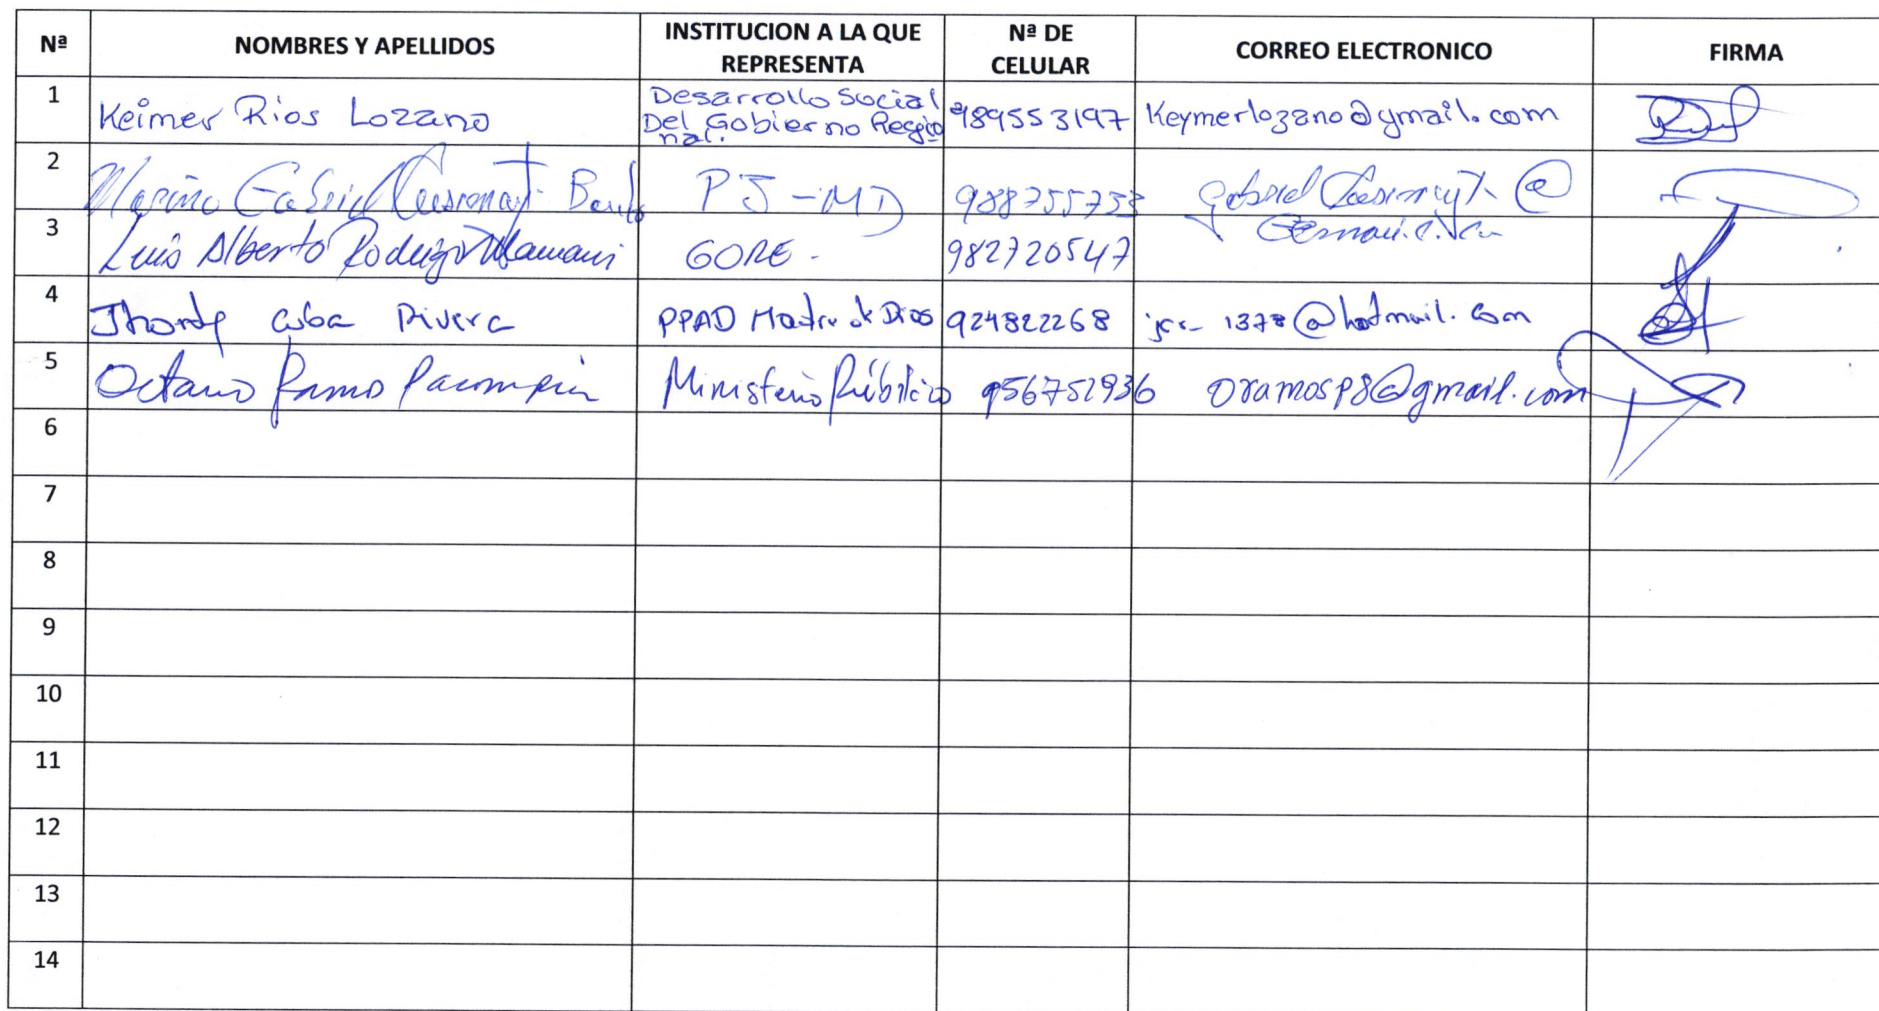 Nª NOMBRES Y APELLIDOS INSTITUCION A LA QUE REPRESENTA Nª DE CELULAR CORREO ELECTRONICO FIRMA
1 Keimer Rios Lozano Desarrollo Social Del Gobierno Regional. 989553197 Keymerlozano@gmail.com
2 Gabriel PJ-MD 988755753 Gabriel @
3 Luis Alberto Rodrigo Mamani GORE. 982720547
4 Cuba Rivera PPAD Madre de Dios 924822268 jcr_1378@hotmail.com
5 Octavio Ramos Ministerio Público 956752936 oramosp8@gmail.com
6
7
8
9
10
11
12
13
14